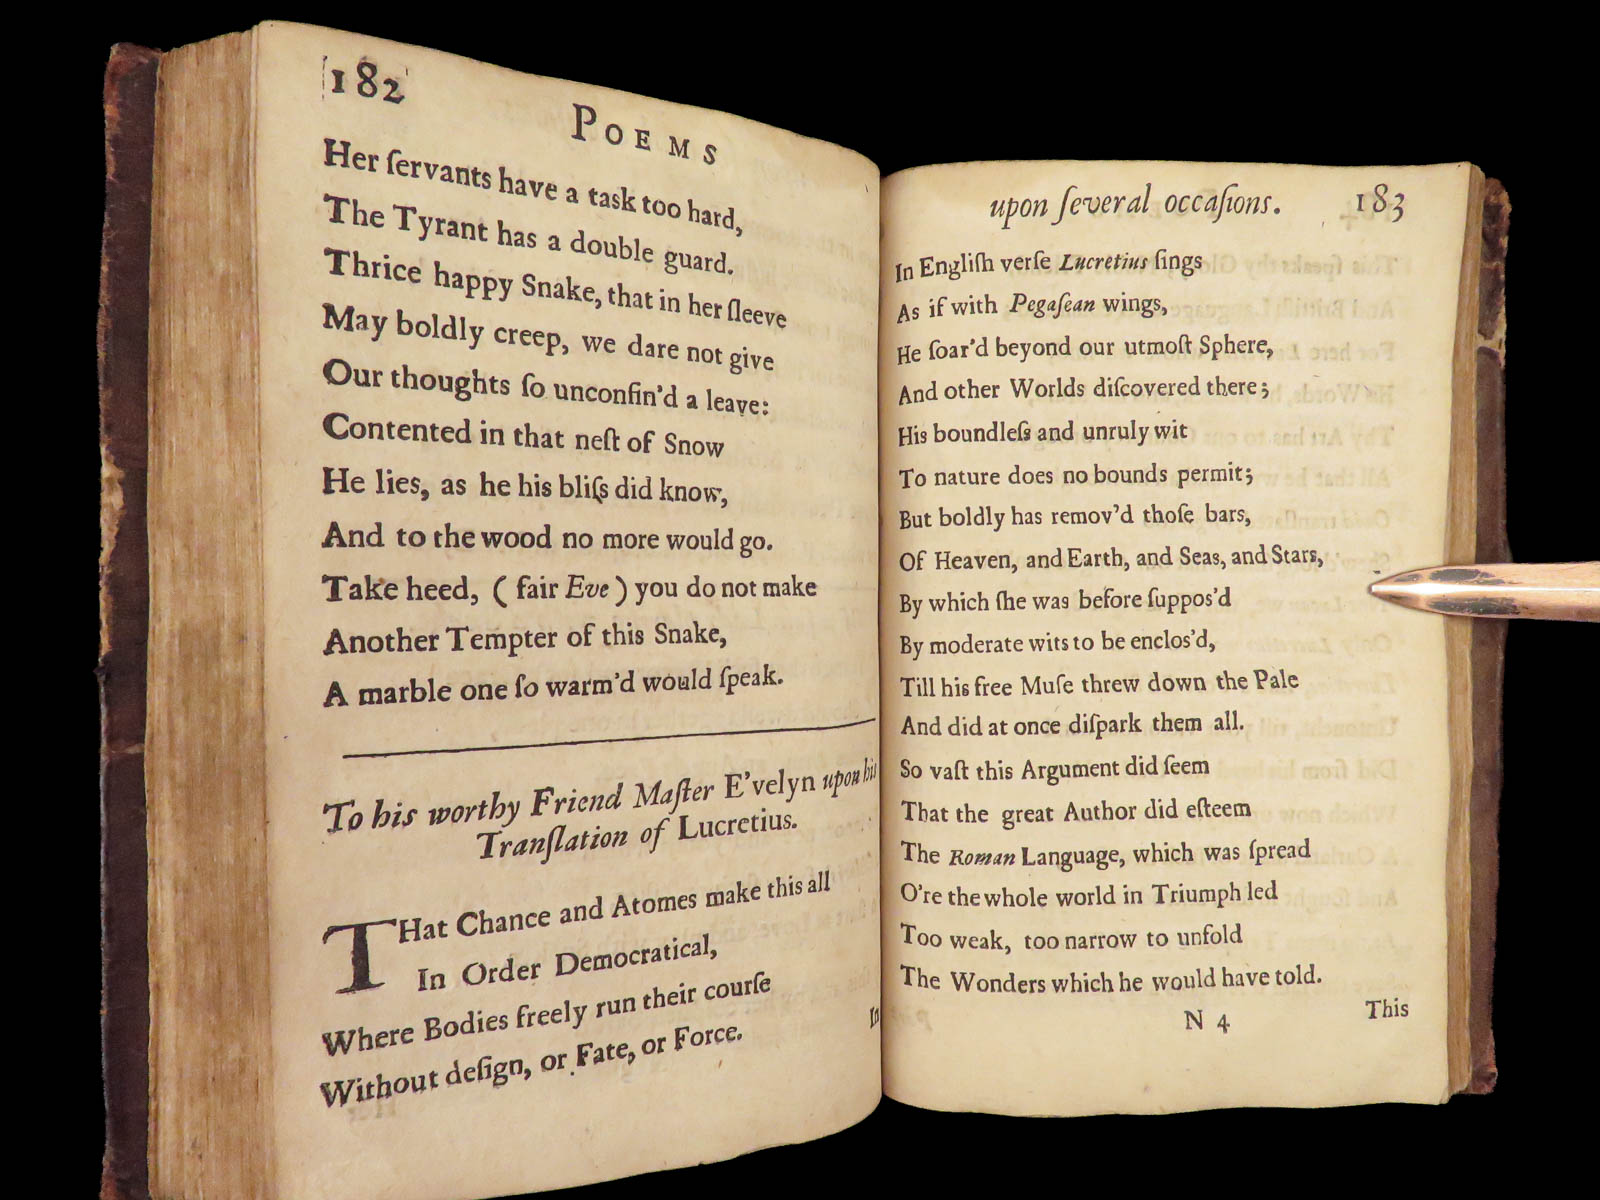 182
POEMS
Her ſervants have a task too hard,
The Tyrant has a double guard.
Thrice happy Snake, that in her ſleeve
May boldly creep, we dare not give
Our thoughts ſo unconfin'd a leave:
Contented in that neſt of Snow
He lies, as he his bliſs did know,
And to the wood no more would go.
Take heed, ( fair Eve ) you do not make
Another Tempter of this Snake,
A marble one ſo warm'd would ſpeak.
To his worthy Friend Maſter E'velyn upon his
Tranſlation of Lucretius.
THat Chance and Atomes make this all
In Order Democratical,
Where Bodies freely run their courſe
Without deſign, or Fate, or Force.
In
upon ſeveral occaſions. 183
In Engliſh verſe Lucretius ſings
As if with Pegaſean wings,
He ſoar'd beyond our utmoſt Sphere,
And other Worlds diſcovered there;
His boundleſs and unruly wit
To nature does no bounds permit;
But boldly has remov'd thoſe bars,
Of Heaven, and Earth, and Seas, and Stars,
By which ſhe was before ſuppos'd
By moderate wits to be enclos'd,
Till his free Muſe threw down the Pale
And did at once diſpark them all.
So vaſt this Argument did ſeem
That the great Author did eſteem
The Roman Language, which was ſpread
O're the whole world in Triumph led
Too weak, too narrow to unfold
The Wonders which he would have told.
N 4
This